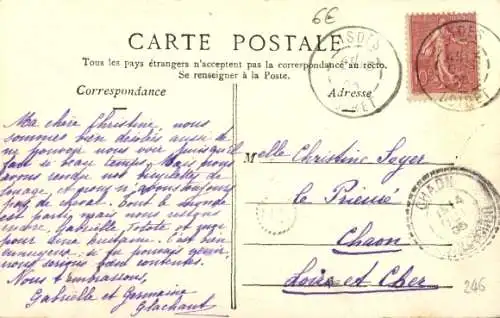 6€
CARTE POSTALE
Tous les pays étrangers n'acceptent pas la correspondance au recto.
Se renseigner à la Poste.
Correspondance
Adresse
Ma chère Christine, nous
sommes bien désolées aussi de
ne pouvoir nous voir puisqu'il
fait si beau temps. Mais nous
avons rendu nos bicyclettes de
louage, et nous n'avons toujours
pas de cheval. Tout le monde
est parti, mais nous restons
encore, Gabrielle, Totote et moi
pour une huitaine. C'est bien
ennuyeux; si tu pouvais venir,
nous serions bien contentes.
Nous t'embrassons,
Gabrielle et Germaine
Glachant
Melle Christine Seger
Le Prieuré
Chaon
Loir et Cher
ISDES
LOIRET
CHAON
246